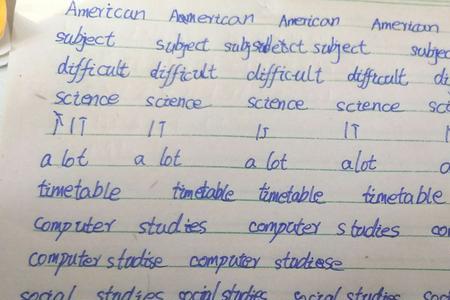 American American American American
subject subject subject subject
difficult difficult difficult difficult di
science science science science sc
IT IT IT
a lot a lot a lot alot a
timetable timetable timetable timetable
computer studies computer studies co
computer studise computer studiese
social studies social studies social studies so